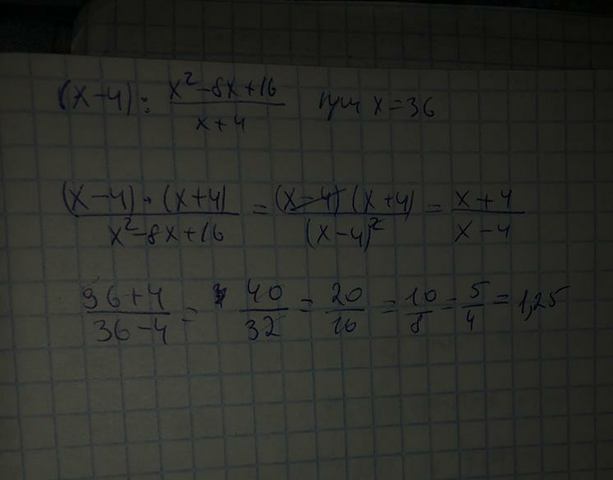 (x-4) : \frac{x^2-8x+16}{x+4} при x=36
\frac{(x-4)·(x+4)}{x^2-8x+16} = \frac{(x-4)(x+4)}{(x-4)^2} = \frac{x+4}{x-4}
\frac{36+4}{36-4} = \frac{40}{32} = \frac{20}{16} = \frac{10}{8} = \frac{5}{4} = 1,25